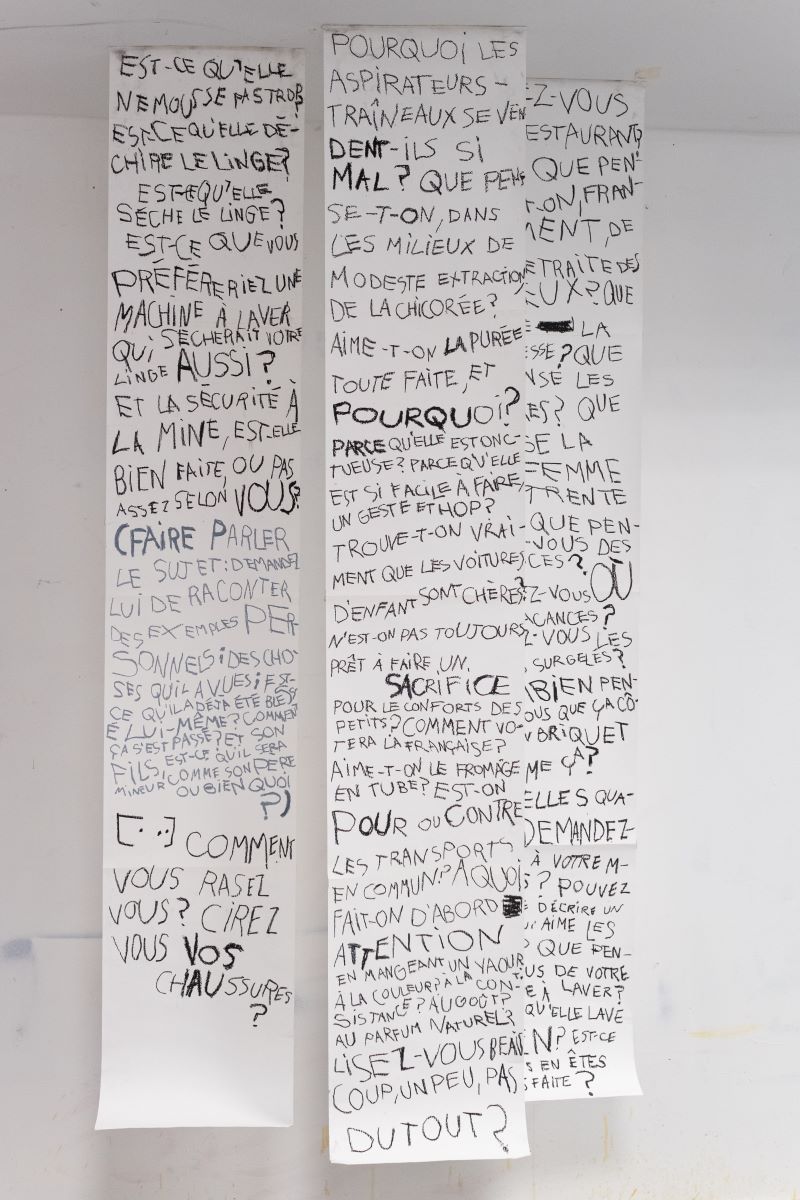 EST-CE QU'ELLE
NE MOUSSE PAS TROP?
EST-CE QU'ELLE DÉ-
CHIRE LE LINGE?
EST-CE QU'ELLE
SÈCHE LE LINGE?
EST-CE QUE VOUS
PRÉFÉRERIEZ UNE
MACHINE À LAVER
QUI SÉCHERAIT VOTRE
LINGE AUSSI?
ET LA SÉCURITÉ À
LA MINE, EST-ELLE
BIEN FAITE, OU PAS
ASSEZ SELON VOUS?
(FAIRE PARLER
LE SUJET: DEMANDEZ
LUI DE RACONTER
DES EXEMPLES PER-
SONNELS; DES CHO-
SES QU'IL A VUES; EST-
CE QU'IL A DÉJÀ ÉTÉ BLESS
É LUI-MÊME? COMMENT
ÇA S'EST PASSÉ? ET SON
FILS, EST-CE QU'IL SERA
MINEUR COMME SON PÈRE
OU BIEN QUOI
?)
[...] COMMENT
VOUS RASEZ
VOUS? CIREZ
VOUS VOS
CHAUSSURES
?
POURQUOI LES
ASPIRATEURS-
TRAÎNEAUX SE VEN
DENT-ILS SI
MAL? QUE PEN
SE-T-ON, DANS
LES MILIEUX DE
MODESTE EXTRACTION
DE LA CHICORÉE?
AIME-T-ON LA PURÉE
TOUTE FAITE, ET
POURQUOI?
PARCE QU'ELLE EST ONC-
TUEUSE? PARCE QU'ELLE
EST SI FACILE À FAIRE,
UN GESTE ET HOP?
TROUVE-T-ON VRAI-
MENT QUE LES VOITURES
D'ENFANT SONT CHÈRES?
N'EST-ON PAS TOUJOURS
PRÊT À FAIRE UN
SACRIFICE
POUR LE CONFORTS DES
PETITS? COMMENT VO-
TERA LA FRANÇAISE?
AIME-T-ON LE FROMAGE
EN TUBE? EST-ON
POUR OU CONTRE
LES TRANSPORTS
EN COMMUN? À QUOI
FAIT-ON D'ABORD
ATTENTION
EN MANGEANT UN YAOUR
À LA COULEUR? À LA CON-
SISTANCE? AU GOÛT?
AU PARFUM NATUREL?
LISEZ-VOUS BEAU
COUP, UN PEU, PAS
DU TOUT?
EZ-VOUS
ESTAURANT?
QUE PEN
T-ON, FRAN-
MENT, DE
ETRAITE DES
EUX? QUE
LA
ESSE? QUE
NSÉ LES
ES? QUE
SE LA
FEMME
TRENTE
QUE PEN-
VOUS DES
CES? OÙ
Z-VOUS
ACANCES?
Z-VOUS LES
SURGELÉS?
BIEN PEN-
OUS QUE ÇA CÔ-
BRIQUET
ME ÇA?
ELLES QUA-
DEMANDEZ-
À VOTRE M-
? POUVEZ
DÉCRIRE UN
AIME LES
? QUE PEN-
US DE VOTRE
E À LAVER?
QU'ELLE LAVE
N? EST-CE
S EN ÊTES
SFAITE?